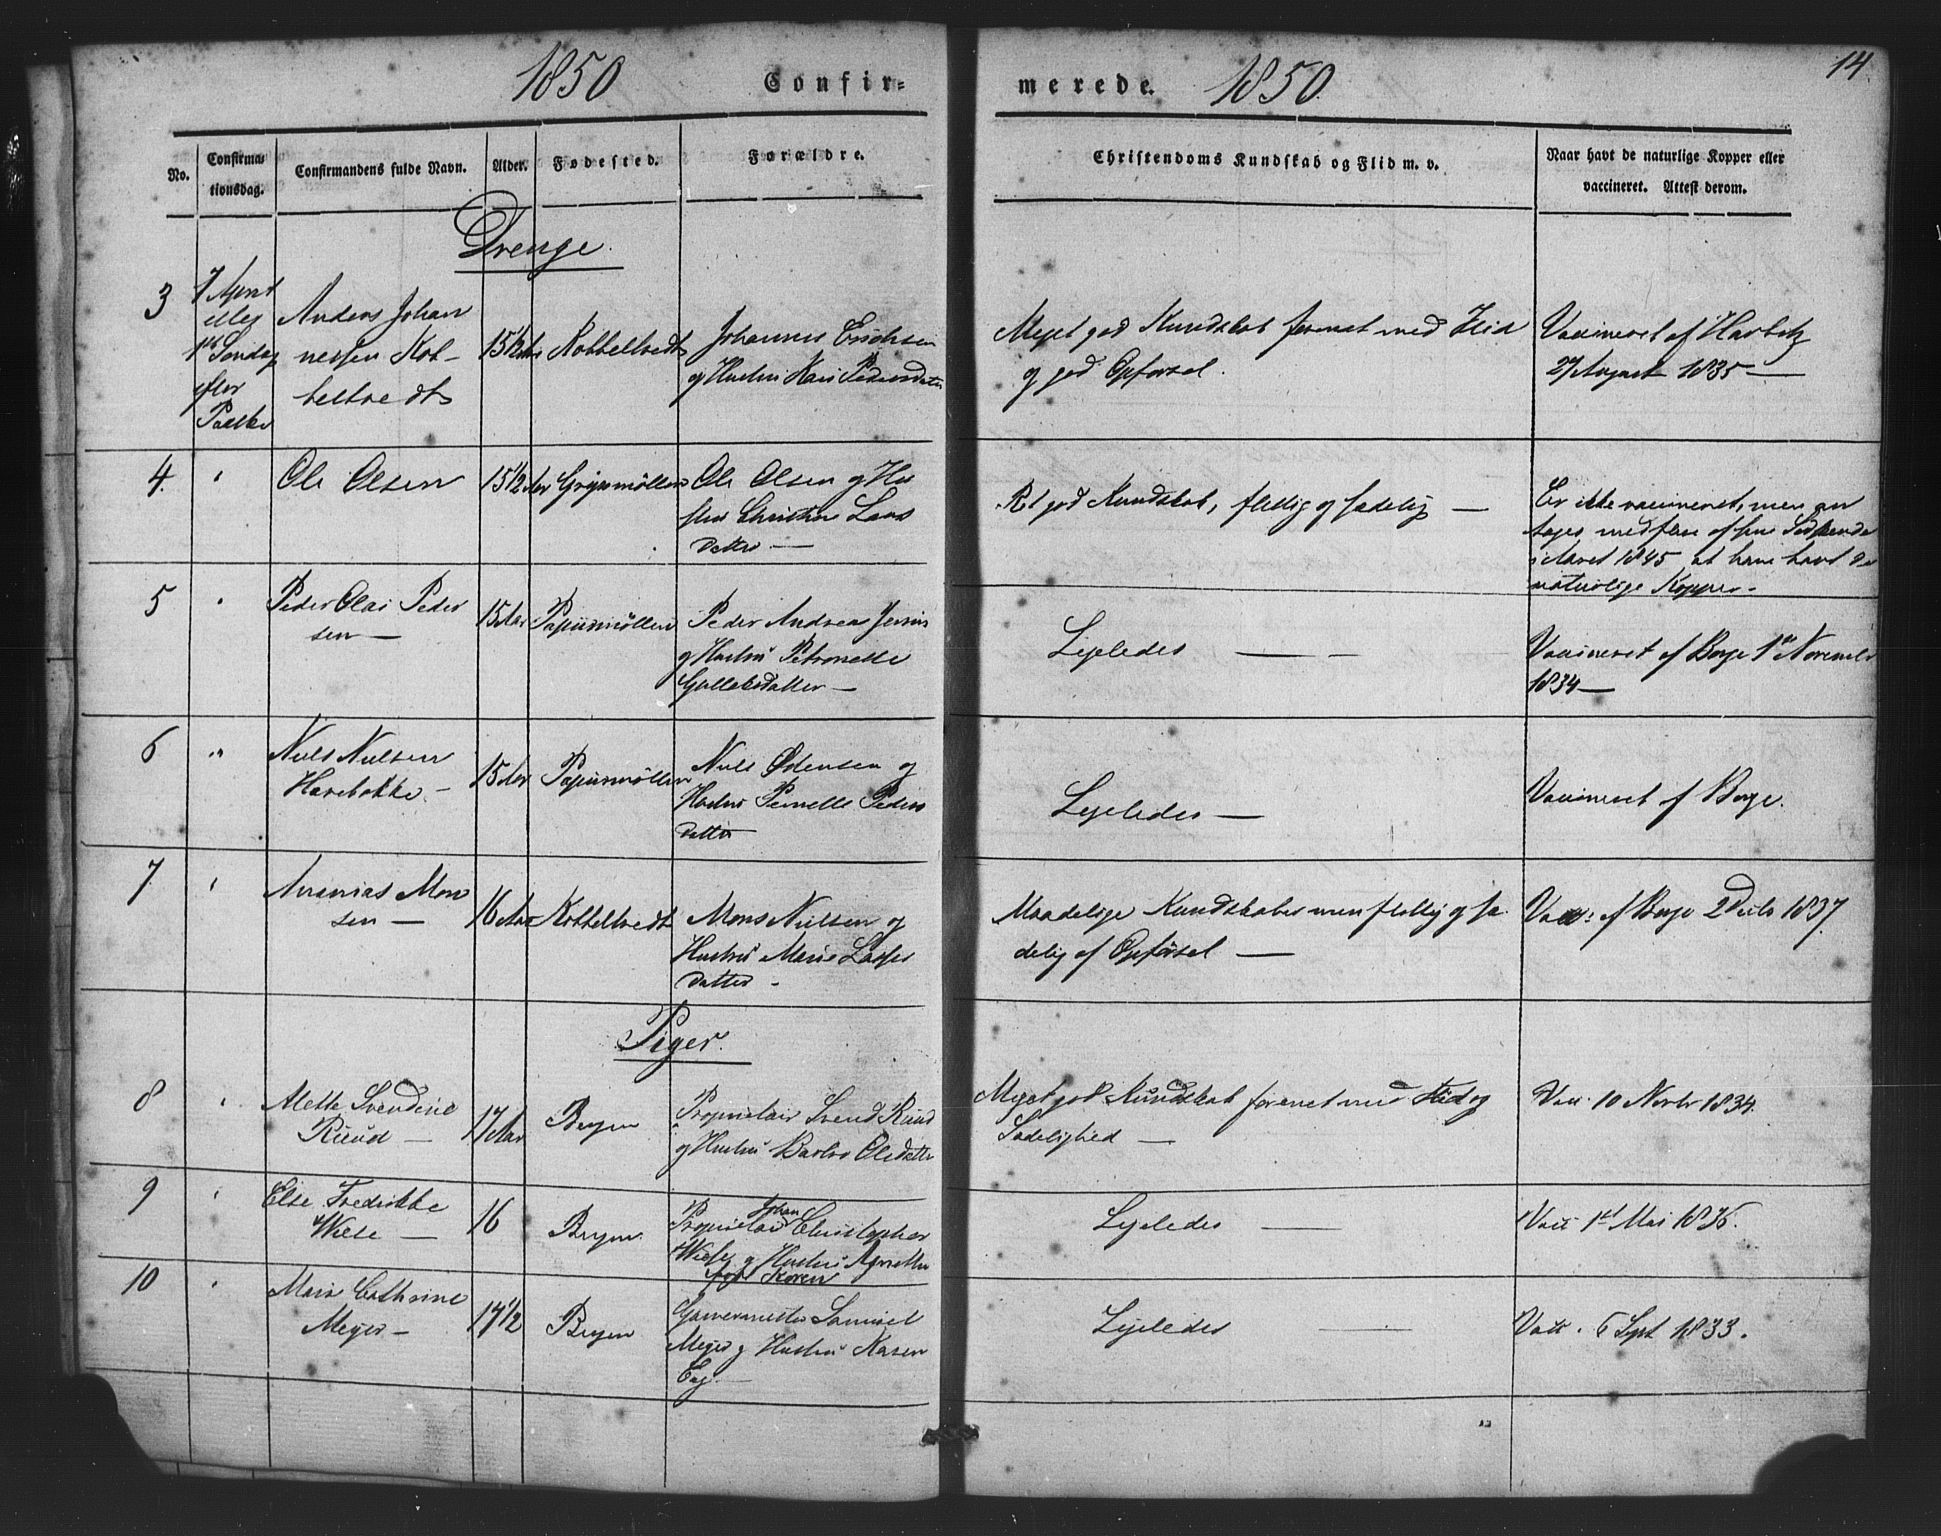 1850 Confir= merede. 1850. 14
No.
Confirma-
tionsdag.
Confirmandens fulde Navn.
Alder.
Fødested.
Forældre.
Christendoms Kundskab og Flid m. v.
Naar havt de naturlige Kopper eller
vaccineret. Attest derom.
Drenge.
3
7 April
eller
1st Søndag
efter
Paaske
Anders Johan
nessen Kob-
beltvedt
15 1/2 Aar
Kobbeltvedt
Johannes Erichsen
og Hustru Kari Pedersdatter
Meget god Kundskab forenet med Flid
og god Opførsel.
Vaccineret af Harbitz
27 August 1835 —
4.
"
Ole Olsen
15 1/2 Aar
Gripsmøllen
Ole Olsen og Hu
stru Christine Lars
datter —
Ret god Kundskab, flittig og sædelig —
Er ikke vaccineret, men an
tages med flere af sine Sødskende
i Aaret 1845 at have havt de
naturlige Kopper.
5
"
Peder Olai Peder
sen —
15 Aar
Papiirmøllen
Peder Andreas Jensen
og Hustru Petronelle
Gullaksdatter —
Ligeledes — —
Vaccineret af Borge 1ste November
1834 —
6
"
Niels Nielsen
Havebakke. —
15 Aar
Papiirmøllen
Niels Odensen og
Hustru Pernelle Peders
datter
Ligeledes —
Vaccineret af Borge.
7.
"
Ananias Mon
sen —
16 Aar
Kobbeltvedt
Mons Nielsen og
Hustru Marie Lasses
datter -
Maadelige Kundskaber men flittig og sæ
delig af Opførsel —
Vacc: af Borge 2 Juli 1837.
Piger.
8
"
Mette Svendine
Ruud —
17 Aar
Bergen
Proprietair Svend Ruud
og Hustru Barbro Olsdatter
Meget god Kundskab forenet med Flid og
Sædelighed —
Vacc. 10 Novbr 1834.
9
"
Else Fredrikke
Wiese —
16
Bergen
Johan
Proprietair Christopher
Wiese og Hustru Agnethe
født Koren
Ligeledes —
Vacc 1st Mai 1836.
10
"
Maria Cathrine
Meyer —
17 1/2
Bergen
Garvermester Samuel
Meyer og Hustru Karen
Ligeledes —
Vacc. 6 Sept 1833.